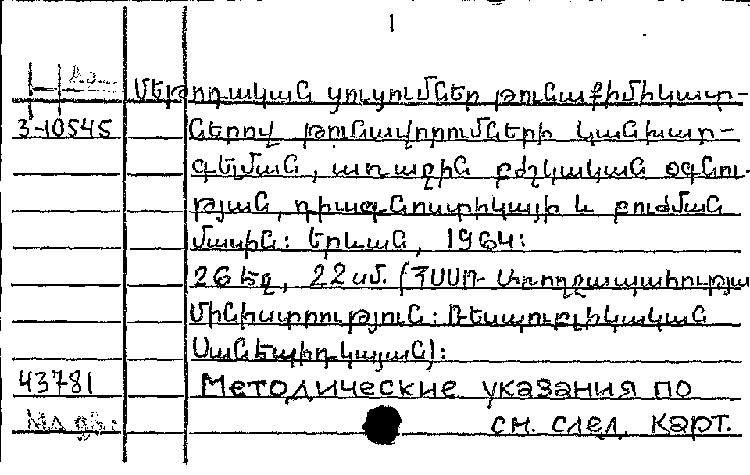 1
Մեթոդական ցուցումներ թունաքիմիկատ-
3-10545 ներով թունավորումների կանխար-
գելման, առաջին բժշկական օգնու-
թյան, դիագնոստիկայի և բուժման
մասին: Երևան, 1964:
26 էջ, 22 սմ. (ՀՍՍՌ Առողջապահությա
մինիստրություն: Ռեսպուբլիկական
Սանէպիդկայան):
43781 Методические указания по
см. след. карт.